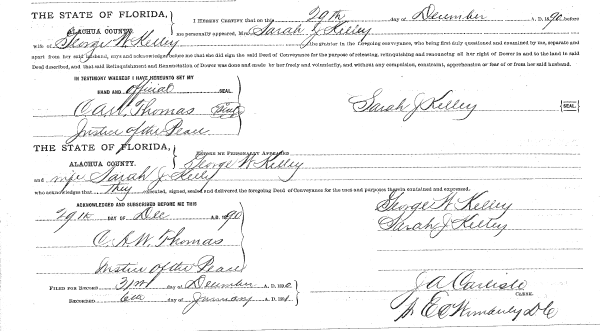 THE STATE OF FLORIDA,
ALACHUA COUNTY.
I HEREBY CERTIFY that on this 29th day of December A. D. 1890 before
me personally appeared, Mrs. Sarah J Kelley
wife of George W. Kelley the grantor in the foregoing conveyance, who being first duly questioned and examined by me, separate and
apart from her said husband, says and acknowledges before me that she did sign the said Deed of Conveyance for the purpose of releasing, relinquishing and renouncing all her right of Dower in and to the land in said
Deed described, and that said Relinquishment and Renunciation of Dower was done and made by her freely and voluntarily, and without any compulsion, constraint, apprehension or fear of or from her said husband.
IN TESTIMONY WHEREOF I HAVE HEREUNTO SET MY
HAND AND official SEAL.
C A W. Thomas
Sarah J Kelley SEAL.
Justice of the Peace
THE STATE OF FLORIDA,
ALACHUA COUNTY.
BEFORE ME PERSONALLY APPEARED George W Kelley
and wife Sarah J Kelley
who acknowledges that They executed, signed, sealed and delivered the foregoing Deed of Conveyance for the uses and purposes therein contained and expressed.
ACKNOWLEDGED AND SUBSCRIBED BEFORE ME THIS
29th DAY OF Dec A. D. 1890
George W Kelley
Sarah J Kelley
C. A. W. Thomas
Justice of the Peace
FILED FOR RECORD 31st day of December A. D. 1890
J A Carlisle
CLERK.
RECORDED 6th day of January A. D. 1891
E C Wimberly D C